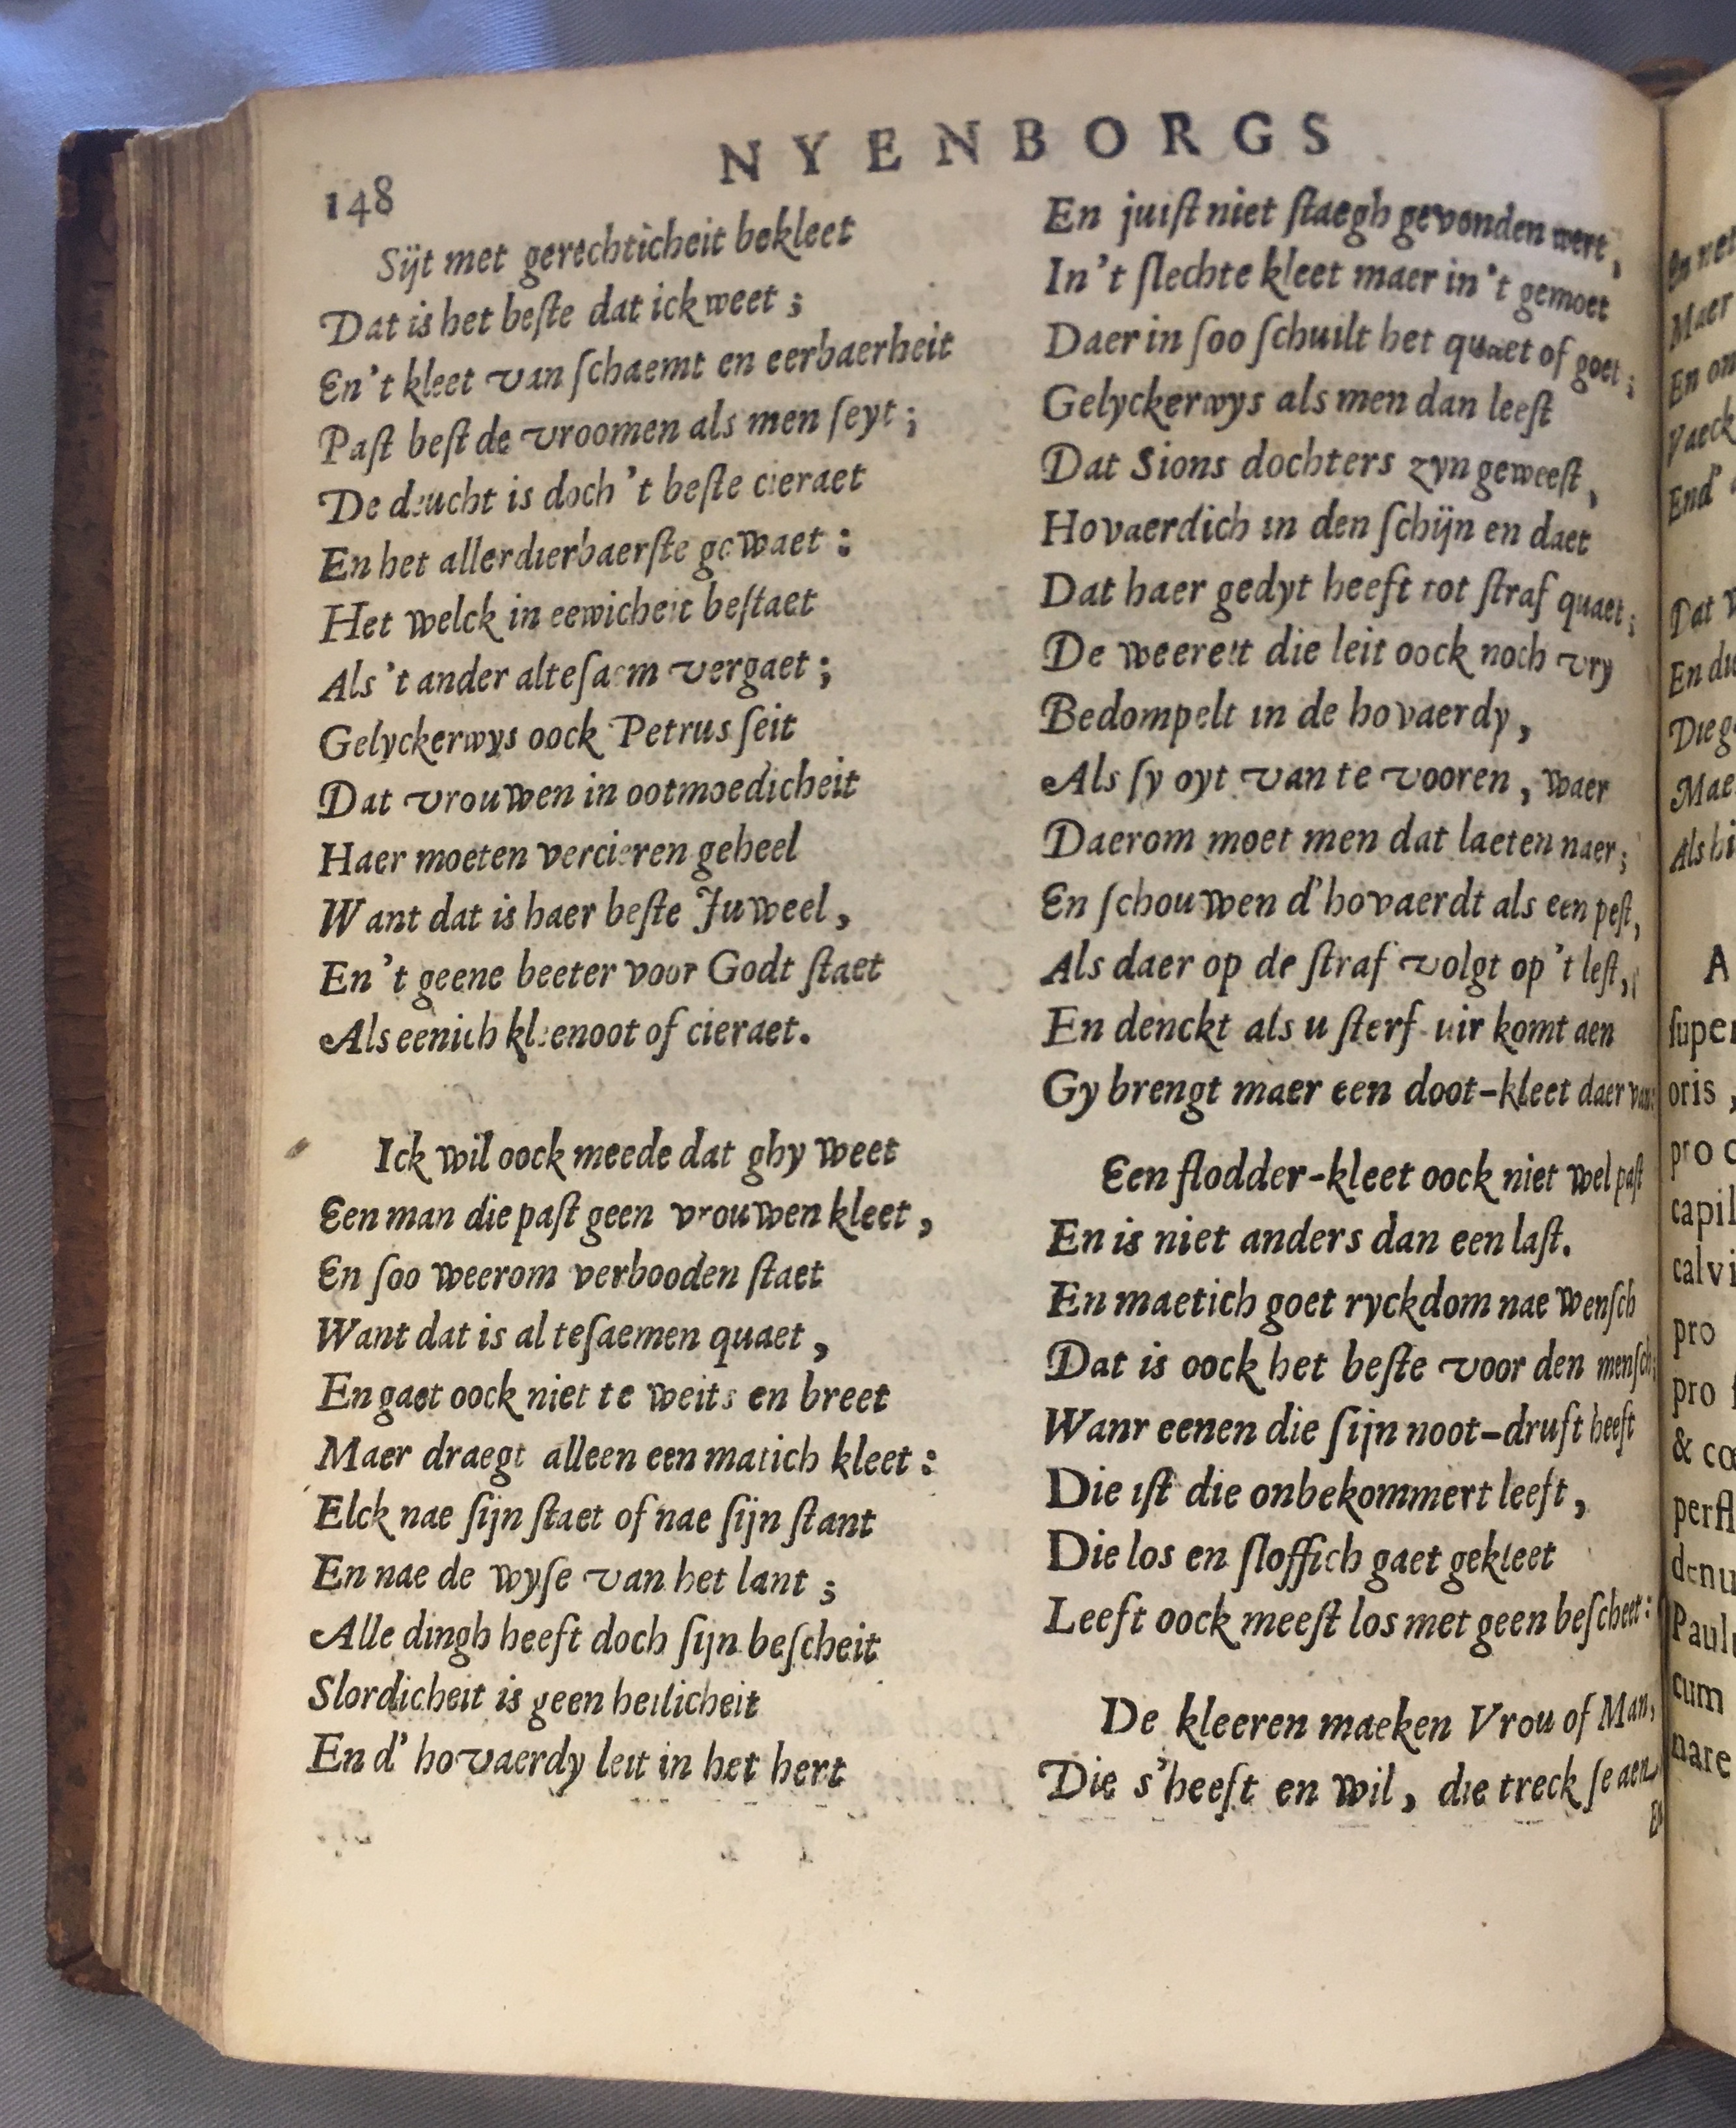 NYENBORGS
148
Sijt met gerechticheit bekleet
Dat is het beſte dat ick weet ;
En't kleet van ſchaemt en eerbaerheit
Paſt beſt de vroomen als men ſeyt ;
De deucht is doch 't beſte cieraet
En het allerdierbaerſte gewaet :
Het welck in eewicheit beſtaet
Als 't ander alteſaem vergaet ;
Gelyckerwys oock Petrus ſeit
Dat vrouwen in ootmoedicheit
Haer moeten vercieren geheel
Want dat is haer beſte Juweel,
En't geene beeter voor Godt ſtaet
Als eenich kleenoot of cieraet.
Ick wil oock meede dat ghy weet
Een man die paſt geen vrouwen kleet,
En ſoo weerom verbooden ſtaet
Want dat is al teſaemen quaet,
En gaet oock niet te weits en breet
Maer draegt alleen een matich kleet :
Elck nae ſijn ſtaet of nae ſijn ſtant
En nae de wyſe van het lant ;
Alle dingh heeft doch ſijn beſcheit
Slordicheit is geen heilicheit
En d' hovaerdy leit in het hert
En juiſt niet ſtaegh gevonden wert,
In't ſlechte kleet maer in't gemoet
Daer in ſoo ſchuilt het quaet of goet ;
Gelyckerwys als men dan leeſt
Dat Sions dochters zyn geweeſt,
Hovaerdich in den ſchijn en daet
Dat haer gedyt heeft tot ſtraf quaet ;
De weerelt die leit oock noch vry
Bedompelt in de hovaerdy,
Als ſy oyt van te vooren, waer
Daerom moet men dat laeten naer ;
En ſchouwen d'hovaerdt als een peſt,
Als daer op de ſtraf volgt op't leſt,
En denckt als u ſterf-uir komt aen
Gy brengt maer een doot-kleet daer van:
Een flodder-kleet oock niet wel paſt
En is niet anders dan een laſt.
En maetich goet ryckdom nae wenſch
Dat is oock het beſte voor den menſch;
Wanr eenen die ſijn noot-druft heeft
Die iſt die onbekommert leeft,
Die los en ſloffich gaet gekleet
Leeft oock meeſt los met geen beſcheet:
De kleeren maeken Vrou of Man,
Die s'heeft en wil, die treck ſe aen
En
Maer
En
Vaeck
End'
Dat
En
Die
Mae
Als
A
ſuper
oris,
pro c
capil
calvi
pro
pro
& cœ
perfl
denu
Paul
cum
nare